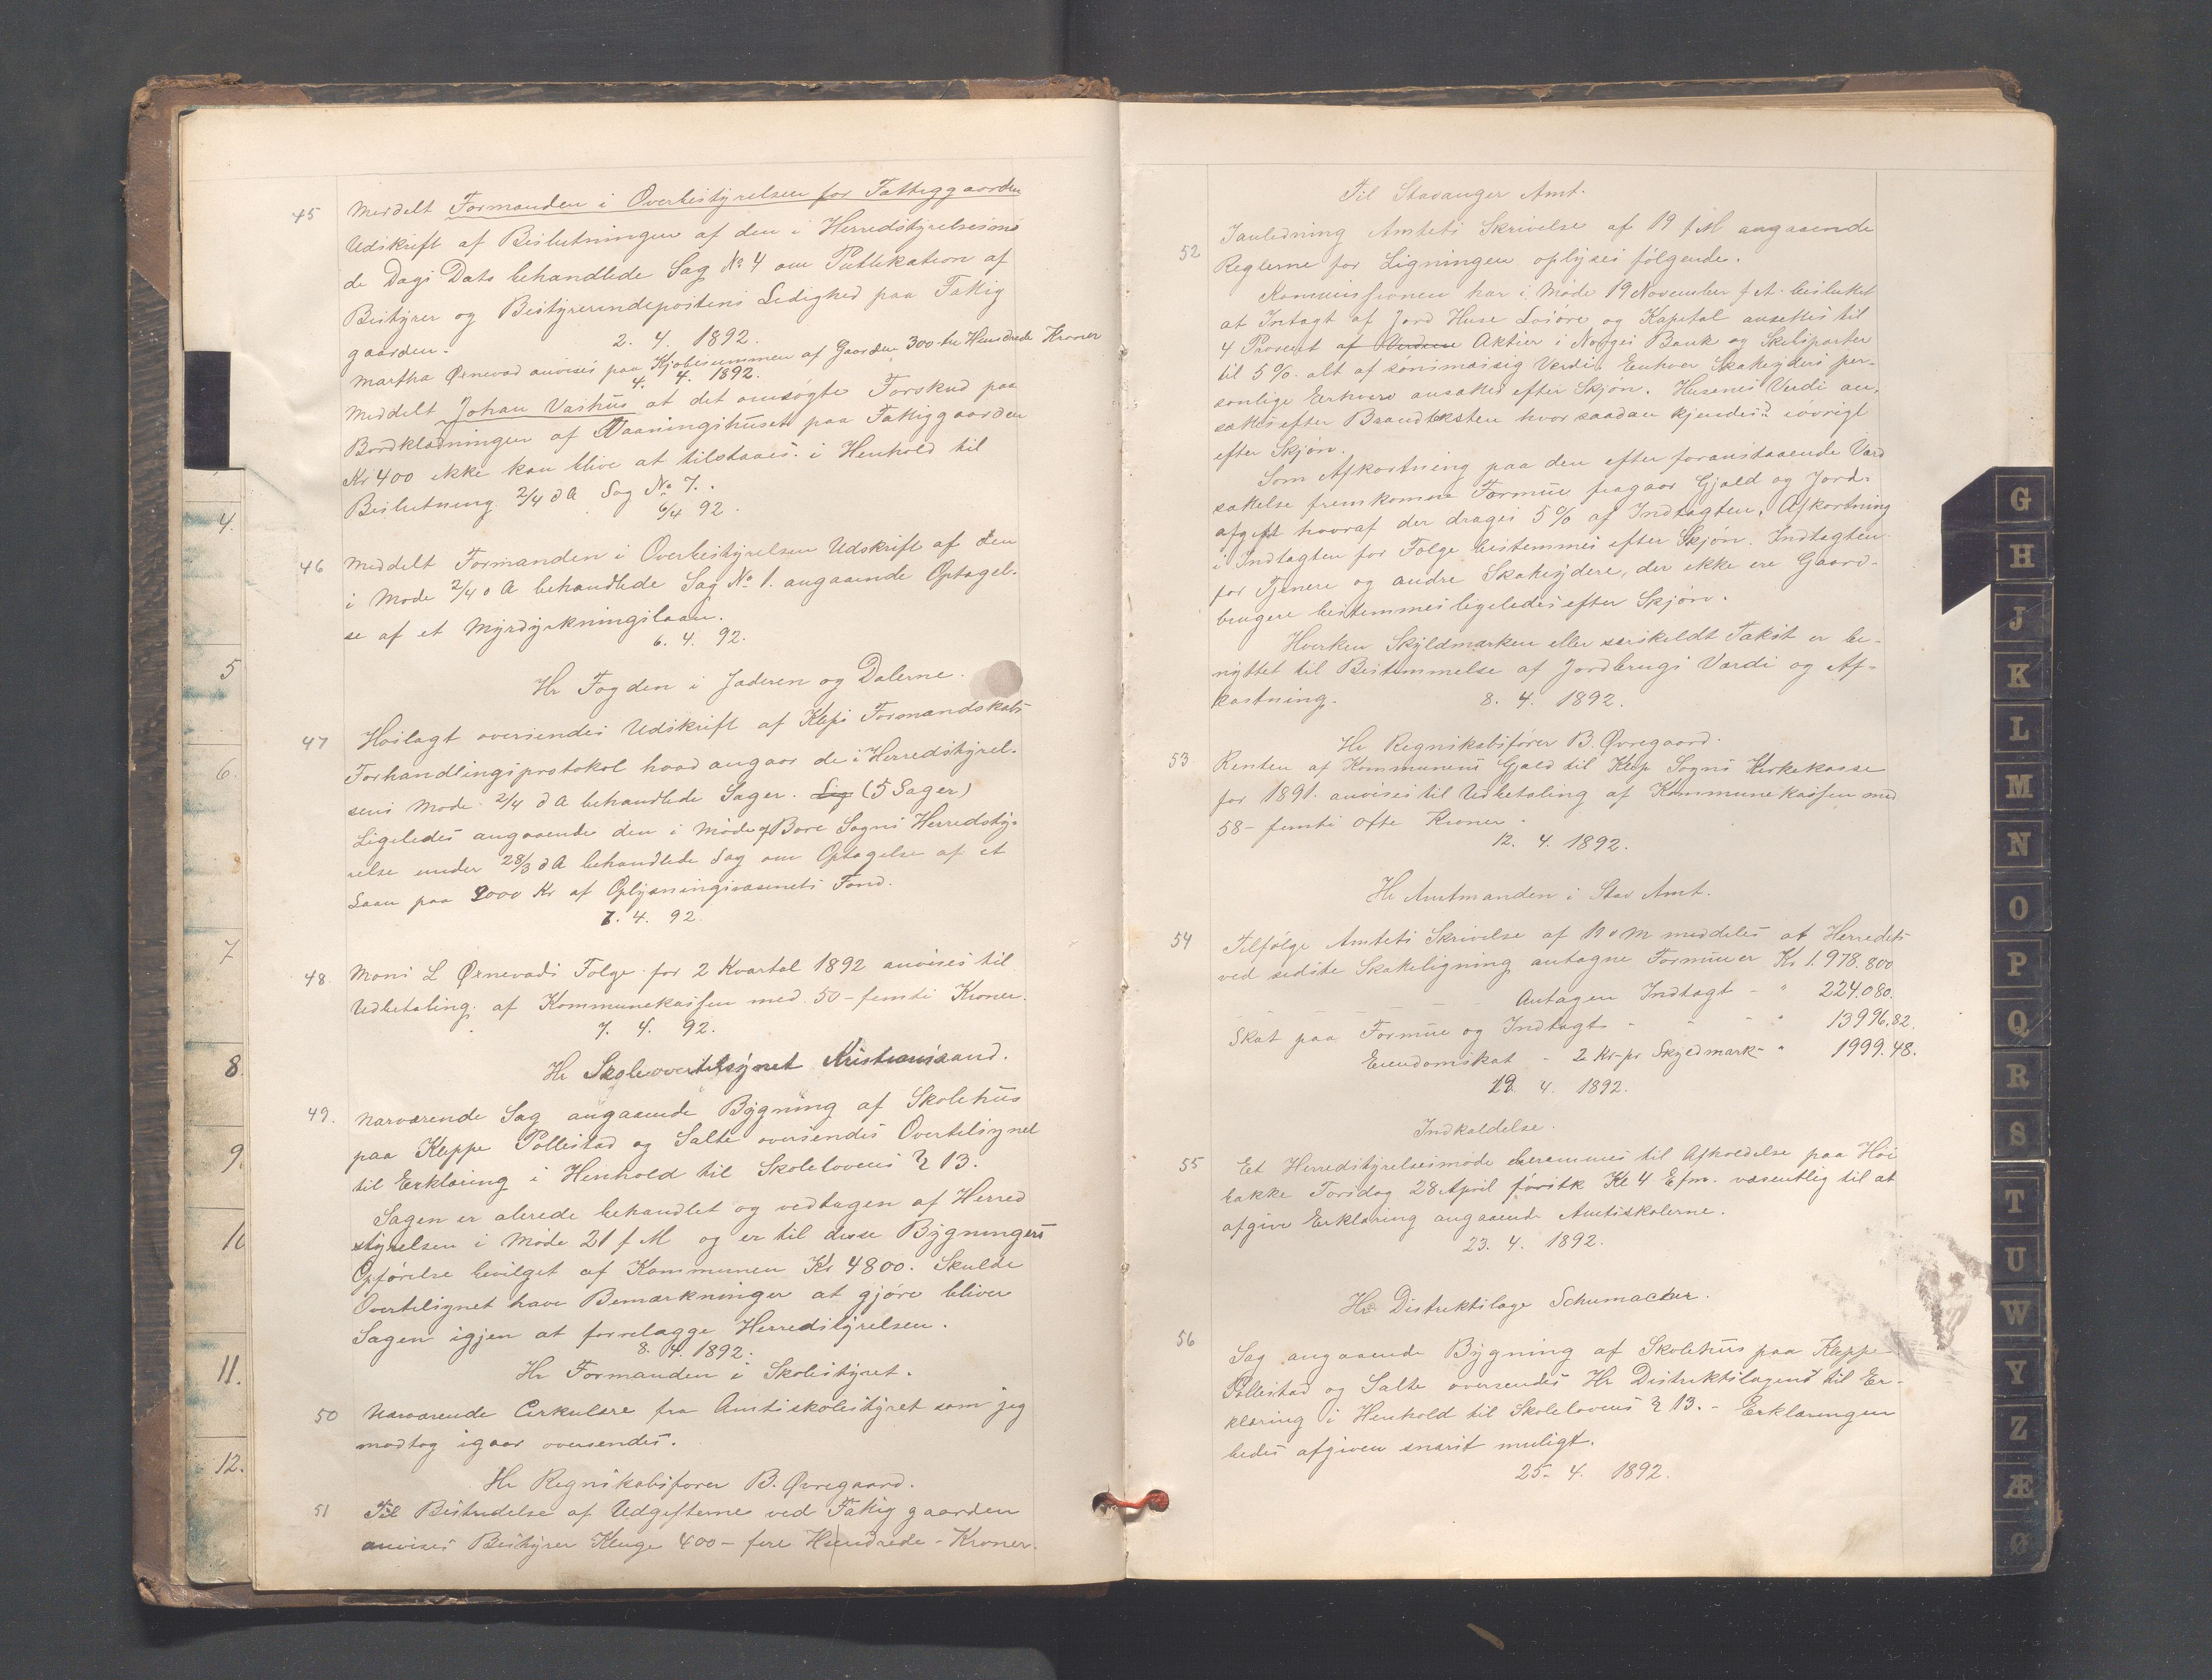 45 Meddelt Formanden i Overbestyrelsen for Fattiggaarden
Udskrift af Beslutningen af den i Herredstyrelsesmø
de Dags Dato behandlede Sag No 4 om Publikation af
Bestyrer og Bestyrerindepostens Ledighed paa Fattig
gaarden.
2. 4. 1892.
Martha Ørnevad anvises paa Kjøbesummen af Gaarden 300 tre Hundrede Kroner
4. 4. 1892.
Meddelt Johan Vashus at det ansøgte Forskud paa
Bordklædningen af Vaaningshuset paa Fattiggaarden
Kr 400 ikke kan blive at tilstaaes i Henhold til
Beslutning 2/4 d A Sag No 7.
6/4 92.
46 Meddelt Formanden i Overbestyrelsen Udskrift af den
i Møde 2/4 d A behandlede Sag No 1. angaaende Optagel-
se af et Myrdyrkningslaan.
6. 4. 92.
Hr Fogden i Jæderen og Dalerne.
47 Hoslagt oversendes Udskrift af Kleps Formandskabs
Forhandlingsprotokol hvad angaar de i Herredstyrel-
sens Møde 2/4 d A behandlede Sager. Lig (5 Sager)
Ligeledes angaaende den i Møde af Bore Sogns Herredsty-
relse under 28/3 d A behandlede Sag om Optagelse af et
Laan paa 2000 Kr af Oplysningsvæsenets Fond.
7. 4. 92.
48. Mons L Ørnevads Folge for 2 Kvartal 1892 anvises til
Udbetaling af Kommunekassen med 50 – femti Kroner.
7. 4. 92.
Hr Skoleovertilsynet Kristianssand.
49. Nærværende Sag angaaende Bygning af Skolehus
paa Kleppe Pollestad og Salte oversendes Overtilsynet
til Erklæring i Henhold til Skolelovens § 13.
Sagen er alerede behandlet og vedtagen af Herred
styrelsen i Møde 21 f M og er til disse Bygningers
Opførelse bevilget af Kommunen Kr 4800. Skulde
Overtilsynet have Bemærkninger at gjøre bliver
Sagen igjen at forelægge Herredstyrelsen.
8. 4. 1892.
Hr Formanden i Skolestyret.
50 Nærværende Cirkulære fra Amtsskolestyret som jeg
modtog igaar oversendes.
Hr Regnskabsfører B. Øvregaard.
51 Til Bestridelse af Udgifterne ved Fattiggaarden
anvises Bestyrer Kluge 400 – fire Hundrede – Kroner.
Til Stavanger Amt.
52 I anledning Amtets Skrivelse af 19 f M angaaende
Reglerne for Ligningen oplyses følgende.
Kommissionen har i Møde 19 November f A. besluttet
at Intægt af Jord Huse Losøre og Kapital ansættes til
4 Procent af Verdien Aktier i Norges Bank og Skibsparter
til 5 %. alt af sønsmæssig Værdi. Enhver Skatteyders per-
sonlige Erhverv ansættes efter Skjøn. Husenes Verdi an-
sættes efter Brandtaksten hvor saadan kjendes iøvrigt
efter Skjøn.
Som Afkortning paa den efter foranstaaende Værd
sættelse fremkomne Formue fragaar Gjæld og Jord-
afgift hvoraf der drages 5 % af Indtægten. Afkortning
i Indtægten for Folge bestemmes efter Skjøn. Indtægten
for Tjenere og andre Skatteydere, der ikke ere Gaard-
brugere bestemmes ligeledes efter Skjøn.
Hverken Skyldmarken eller særskildt Takst er be-
nyttet til Bestemmelse af Jordbrugs Værdi og Af-
kastning.
8. 4. 1892.
Hr Regnskabsfører B. Øvregaard.
53 Renten af Kommunens Gjæld til Klep Sogns Kirkekasse
for 1891. anvises til Udbetaling af Kommunekassen med
58 – femti otte Kroner.
12. 4. 1892.
Hr Amtmanden i Stav Amt.
54 Tilfølge Amtets Skrivelse af 11 d M meddeles at Herredets
ved sidste Skatteligning antagne Formue er Kr 1.978.800
Antagen Indtægt – " 224.080.
Skat paa Formue og Indtægt – " 13996,82.
Eiendomsskat – 2 Kr pr Skyldmark – " 1999.48.
19. 4. 1892.
Indkaldelse.
55 Et Herredstyrelsesmøde berammes til Afholdelse paa Høi
bakke Torsdag 28 April førstk Kl 4 Efm. væsentlig til at
afgive Erklæring angaaende Amtsskolerne.
23. 4. 1892.
Hr Distriktslæge Schumacher.
56 Sag angaaende Bygning af Skolehus paa Kleppe
Pollestad og Salte oversendes Hr Distriktslægen til Er-
klæring i Henhold til Skolelovens § 13. – Erklæringen
bedes afgiven snarest muligt.
25. 4. 1892.
4.
5
6.
7
8.
9.
10
11.
12.
G
H
J
K
L
M
N
O
P
Q
R
S
T
U
W
Y
Z
Æ
Ø